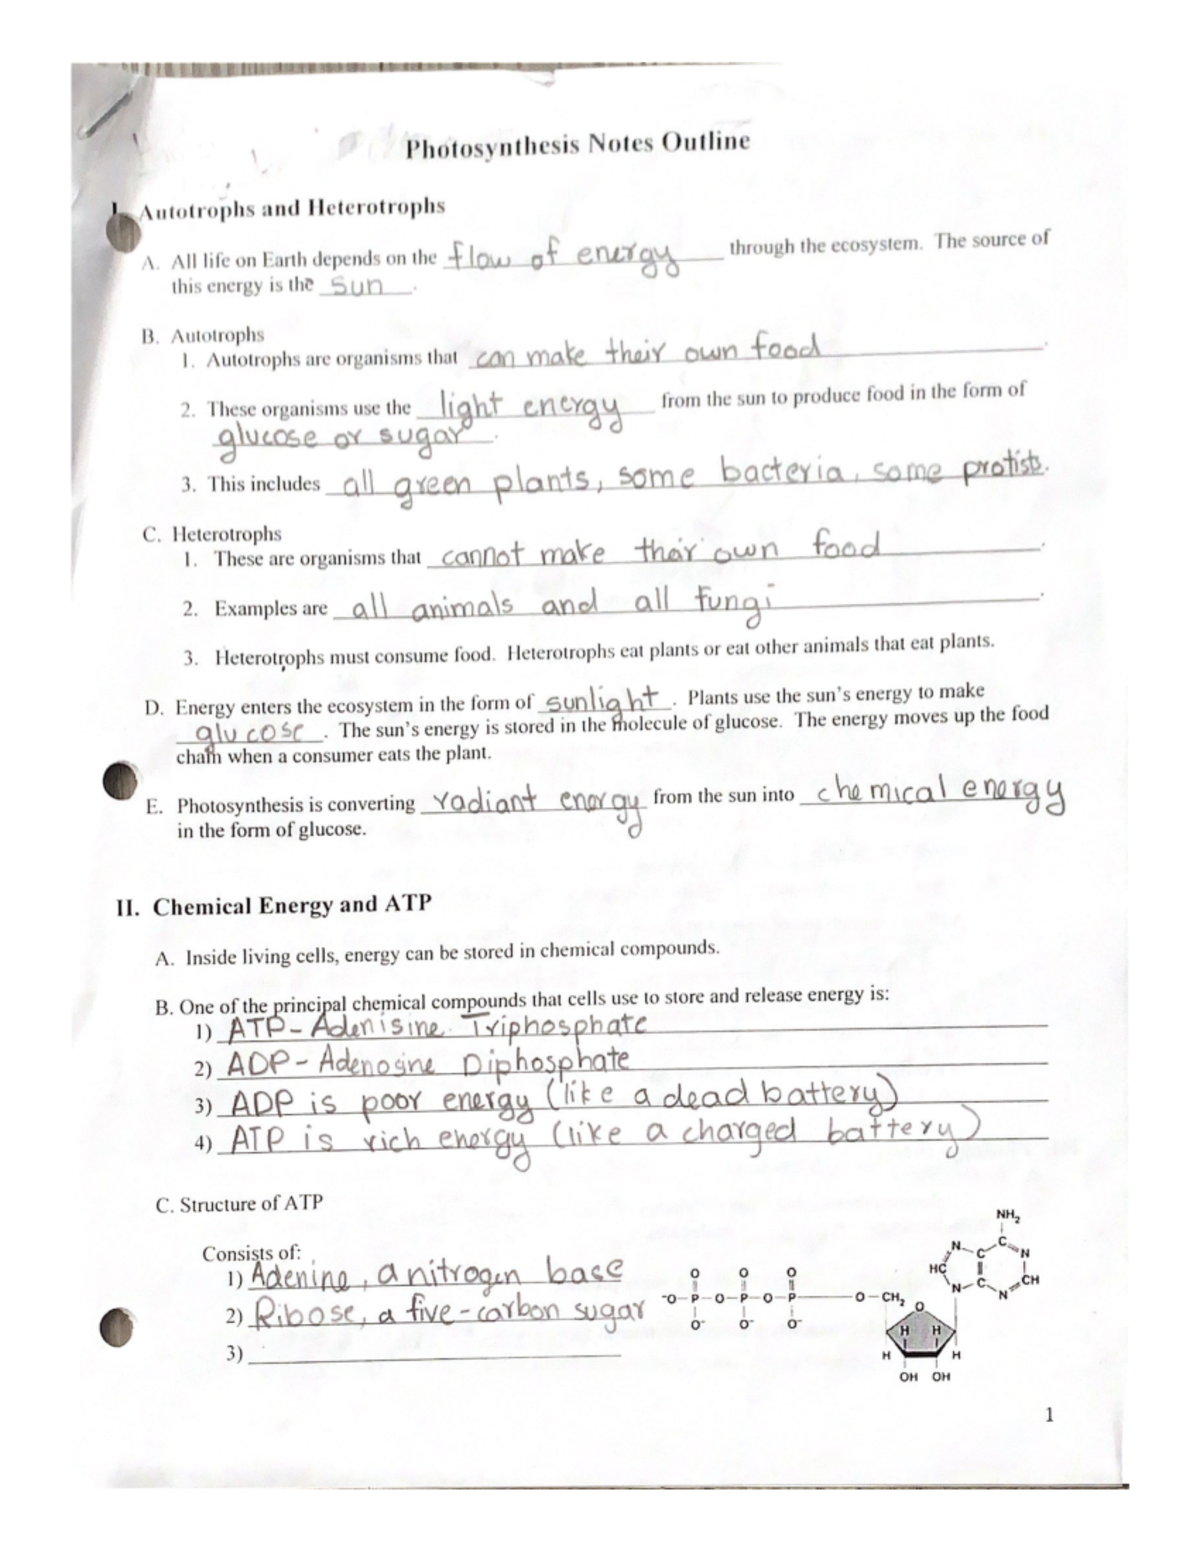 Photosynthesis Notes Outline
I. Autotrophs and Heterotrophs
A. All life on Earth depends on the flow of energy through the ecosystem. The source of
this energy is the sun.
B. Autotrophs
1. Autotrophs are organisms that can make their own food.
2. These organisms use the light energy from the sun to produce food in the form of
glucose or sugar.
3. This includes all green plants, some bacteria, some protists.
C. Heterotrophs
1. These are organisms that cannot make their own food.
2. Examples are all animals and all fungi.
3. Heterotrophs must consume food. Heterotrophs eat plants or eat other animals that eat plants.
D. Energy enters the ecosystem in the form of sunlight. Plants use the sun's energy to make
glucose. The sun's energy is stored in the molecule of glucose. The energy moves up the food
chain when a consumer eats the plant.
E. Photosynthesis is converting radiant energy from the sun into chemical energy
in the form of glucose.
II. Chemical Energy and ATP
A. Inside living cells, energy can be stored in chemical compounds.
B. One of the principal chemical compounds that cells use to store and release energy is:
1) ATP - Adenisine Triphosphate
2) ADP - Adenosine Diphosphate
3) ADP is poor energy (like a dead battery)
4) ATP is rich energy (like a charged battery)
C. Structure of ATP
Consists of:
1) Adenine, a nitrogen base
2) Ribose, a five-carbon sugar
3)
NH2
N C C N
HC CH
N C N
O O O
-O-P-O-P-O-P O-CH2 O
O- O- O-
H H
H H
OH OH
1